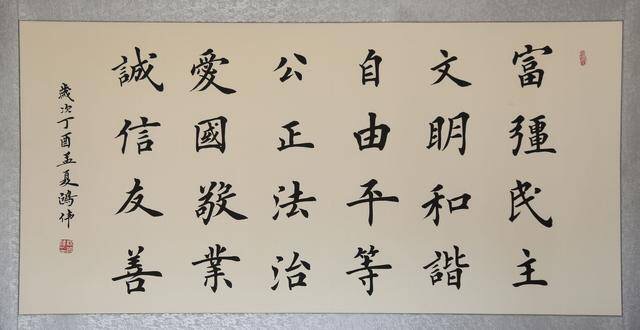 富彊民主
文明和諧
自由平等
公正法治
愛國敬業
誠信友善
歲次丁酉孟夏鴻伟